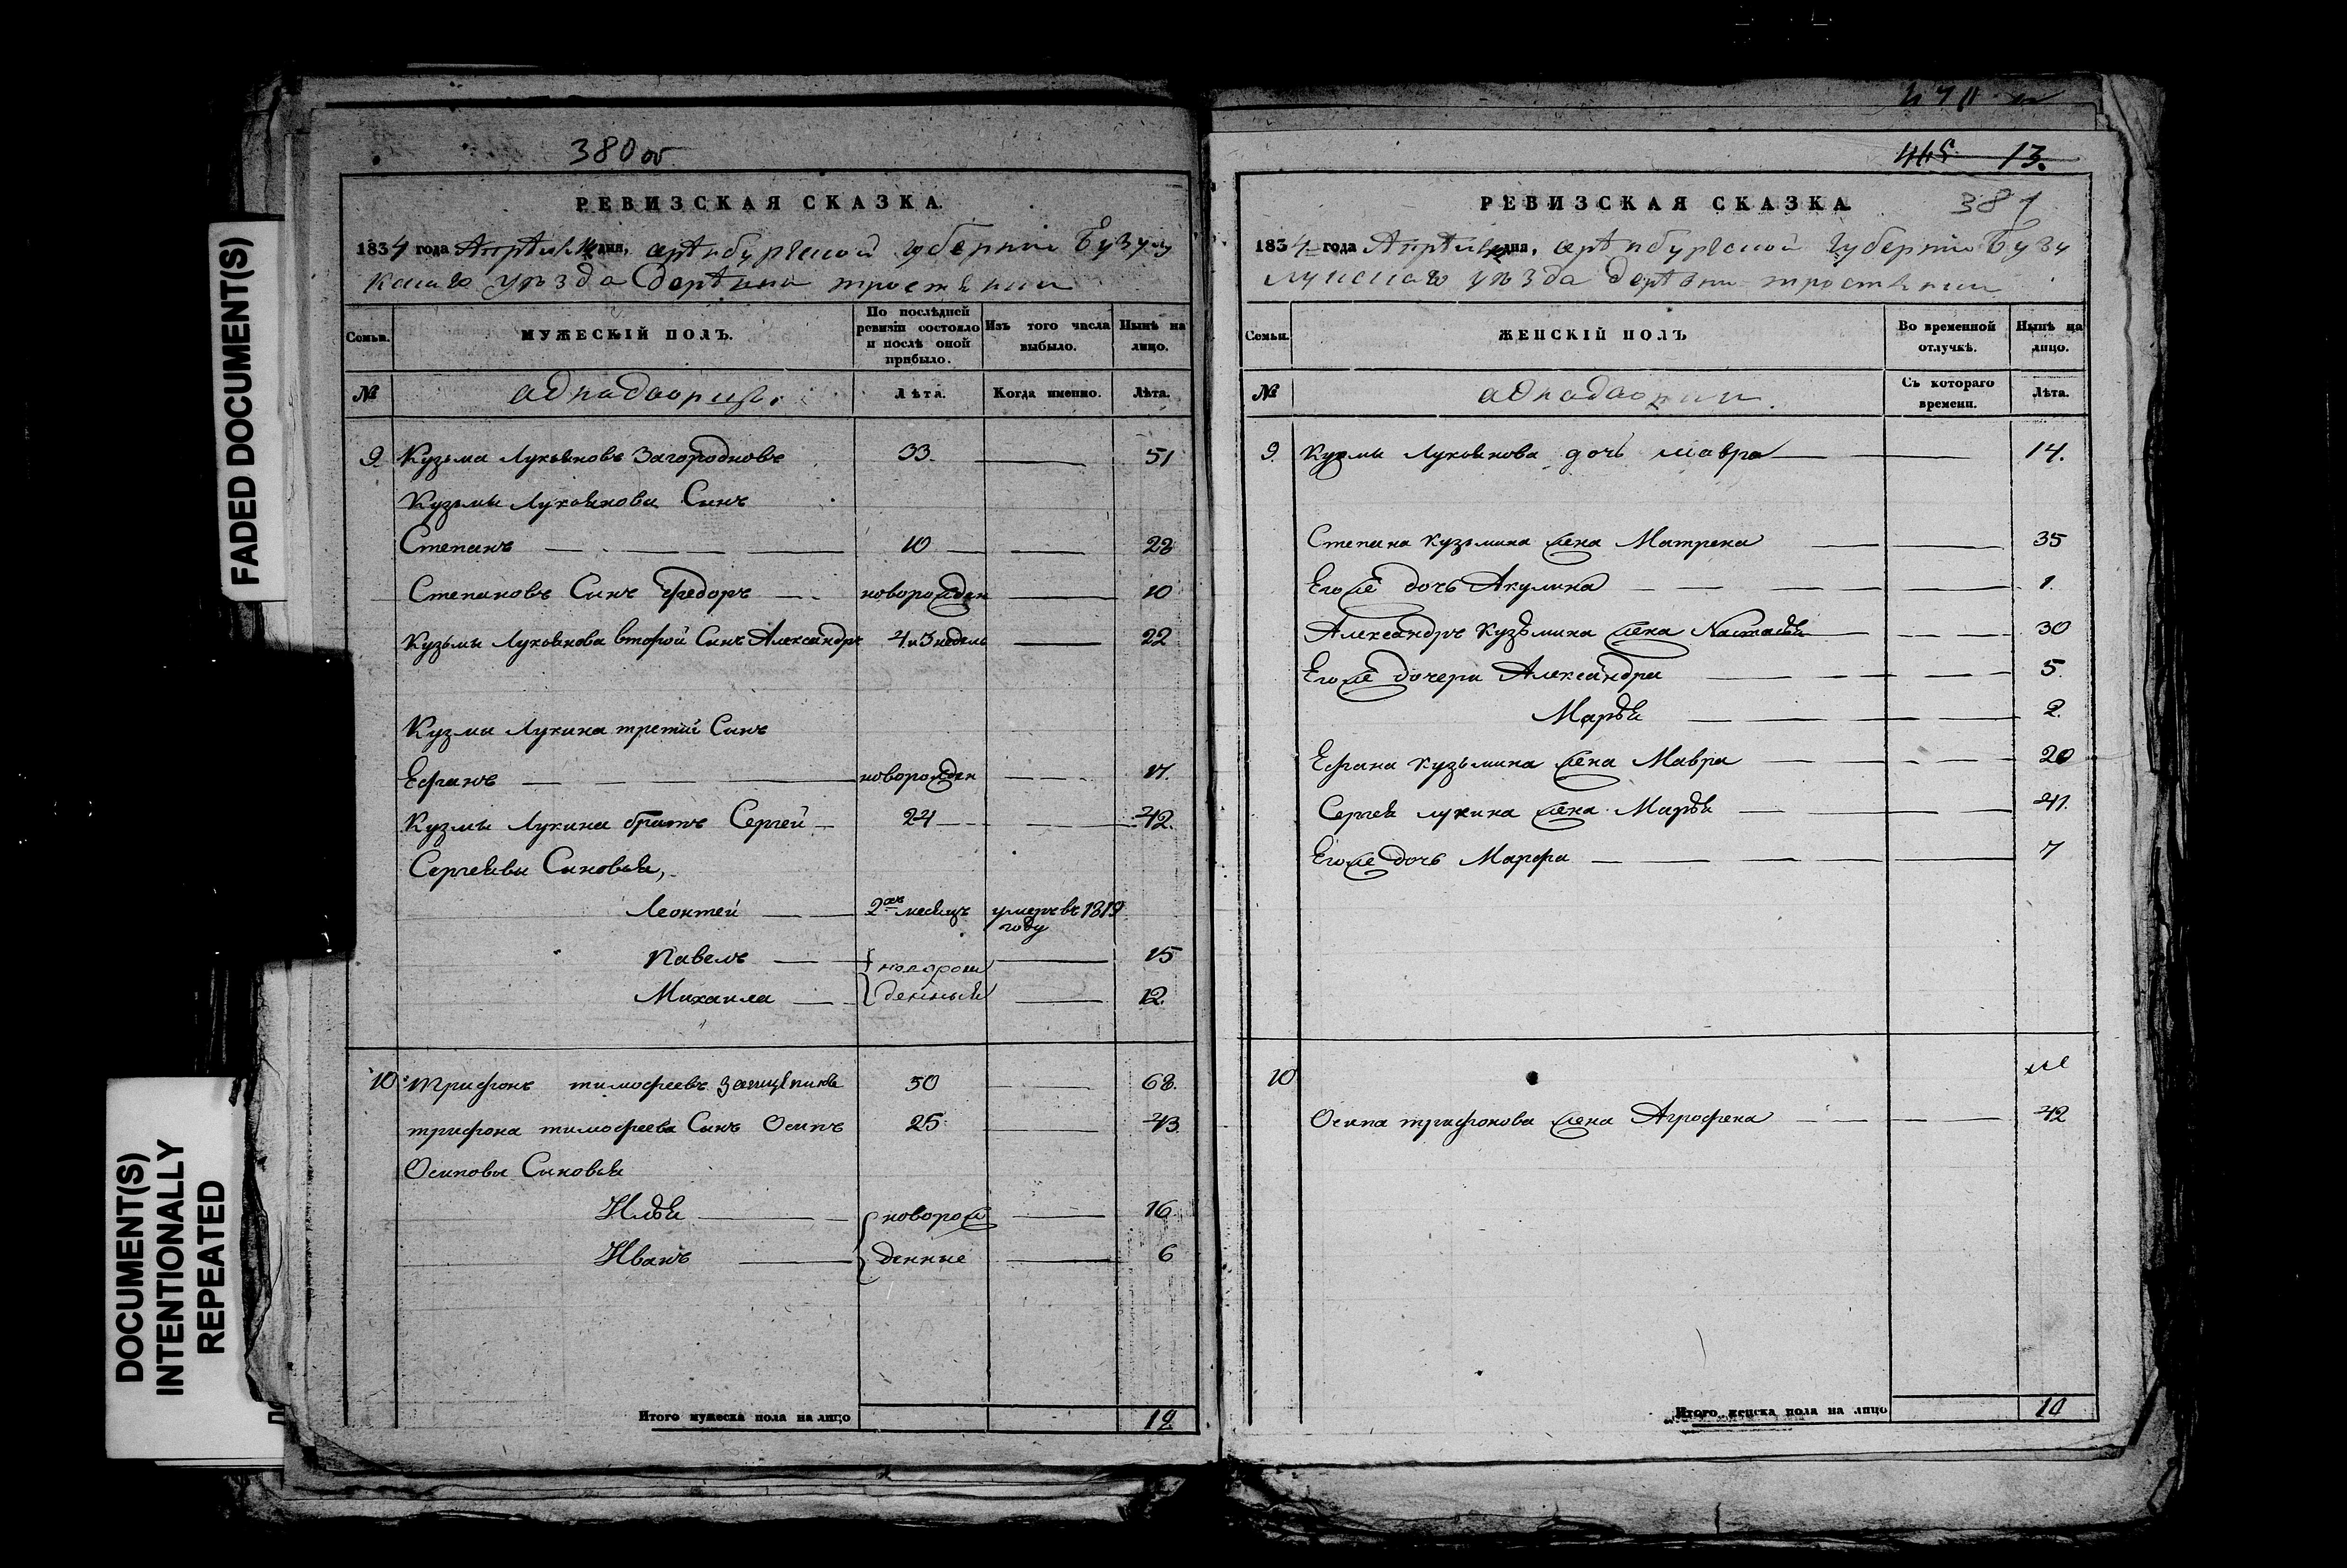 FADED DOCUMENT(S)
DOCUMENT(S)
INTENTIONALLY
REPEATED
380 об
РЕВИЗСКАЯ СКАЗКА.
1834 года Апрѣля дня, арѣнбурской губерніи Бузулу
каго уѣзда Дерѣвни тростѣнки
Семьи.
МУЖЕСКІЙ ПОЛЪ.
По послѣдней ревизіи состояло и послѣ оной прибыло.
Изъ того числа выбыло.
Нынѣ на лицо.
№
аднадворцы.
Лѣта.
Когда именно.
Лѣта.
9. Кузьма Лукьяновъ Загороdновъ 33. 51
Кузьмы Лукьянова Синъ
Степанъ 10 28
Степановъ Синъ Федоръ новорожден 10
Кузьмы Лукьянова второй Синъ Александръ 4 и 3 недель 22
Кузмы Лукина третий Синъ
Ефанъ новорожден 17.
Кузмы Лукина братъ Сергей 24 42.
Сергеявы Сыновья,
Леонтей 2 месяцъ умеръ въ 1819 году
Павелъ новорож 15
Михаила денныя 12.
10 трифонъ тимофеевъ 50 68.
трифона тимофеева Синъ Осипъ 25 43
Осиповы Сыновья
Илья новорож 16
Иванъ денные 6
Итого мужеска пола на лицо 12
13.
381
РЕВИЗСКАЯ СКАЗКА
1834 года Апрѣля дня, арѣнбурской губерніи Бузу
лукскаго уѣзда дерѣвни тростѣнки
Семьи.
ЖЕНСКІЙ ПОЛЪ
Во временной отлучкѣ.
Нынѣ на лицо.
№
аднадворки.
Съ котораго времени.
Лѣта.
9. Кузмы Лукьянова дочь мавра 14.
Степана Кузьмина жена Матрена 35
Егоже дочь Акулина 1.
Александръ Кузьмина жена Настасья 30
Егоже дочери Александра 5.
Марья 2.
Ефана Кузьмина жена Мавра 20
Сергея лукина жена Марья 41.
Егоже дочь Марфа 7
10
Осипа трифонова жена Агрофена 42
Итого женска пола на лицо 10